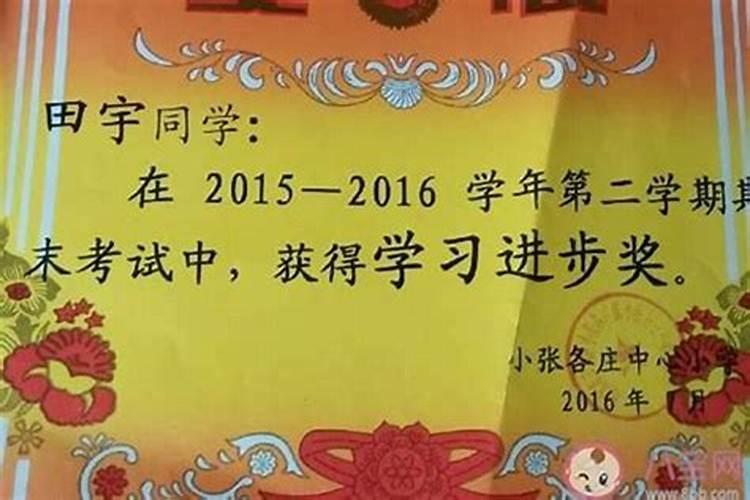 田宇同学：
在 2015—2016 学年第二学期期
末考试中，获得学习进步奖。
小张各庄中心小学
2016 年 月